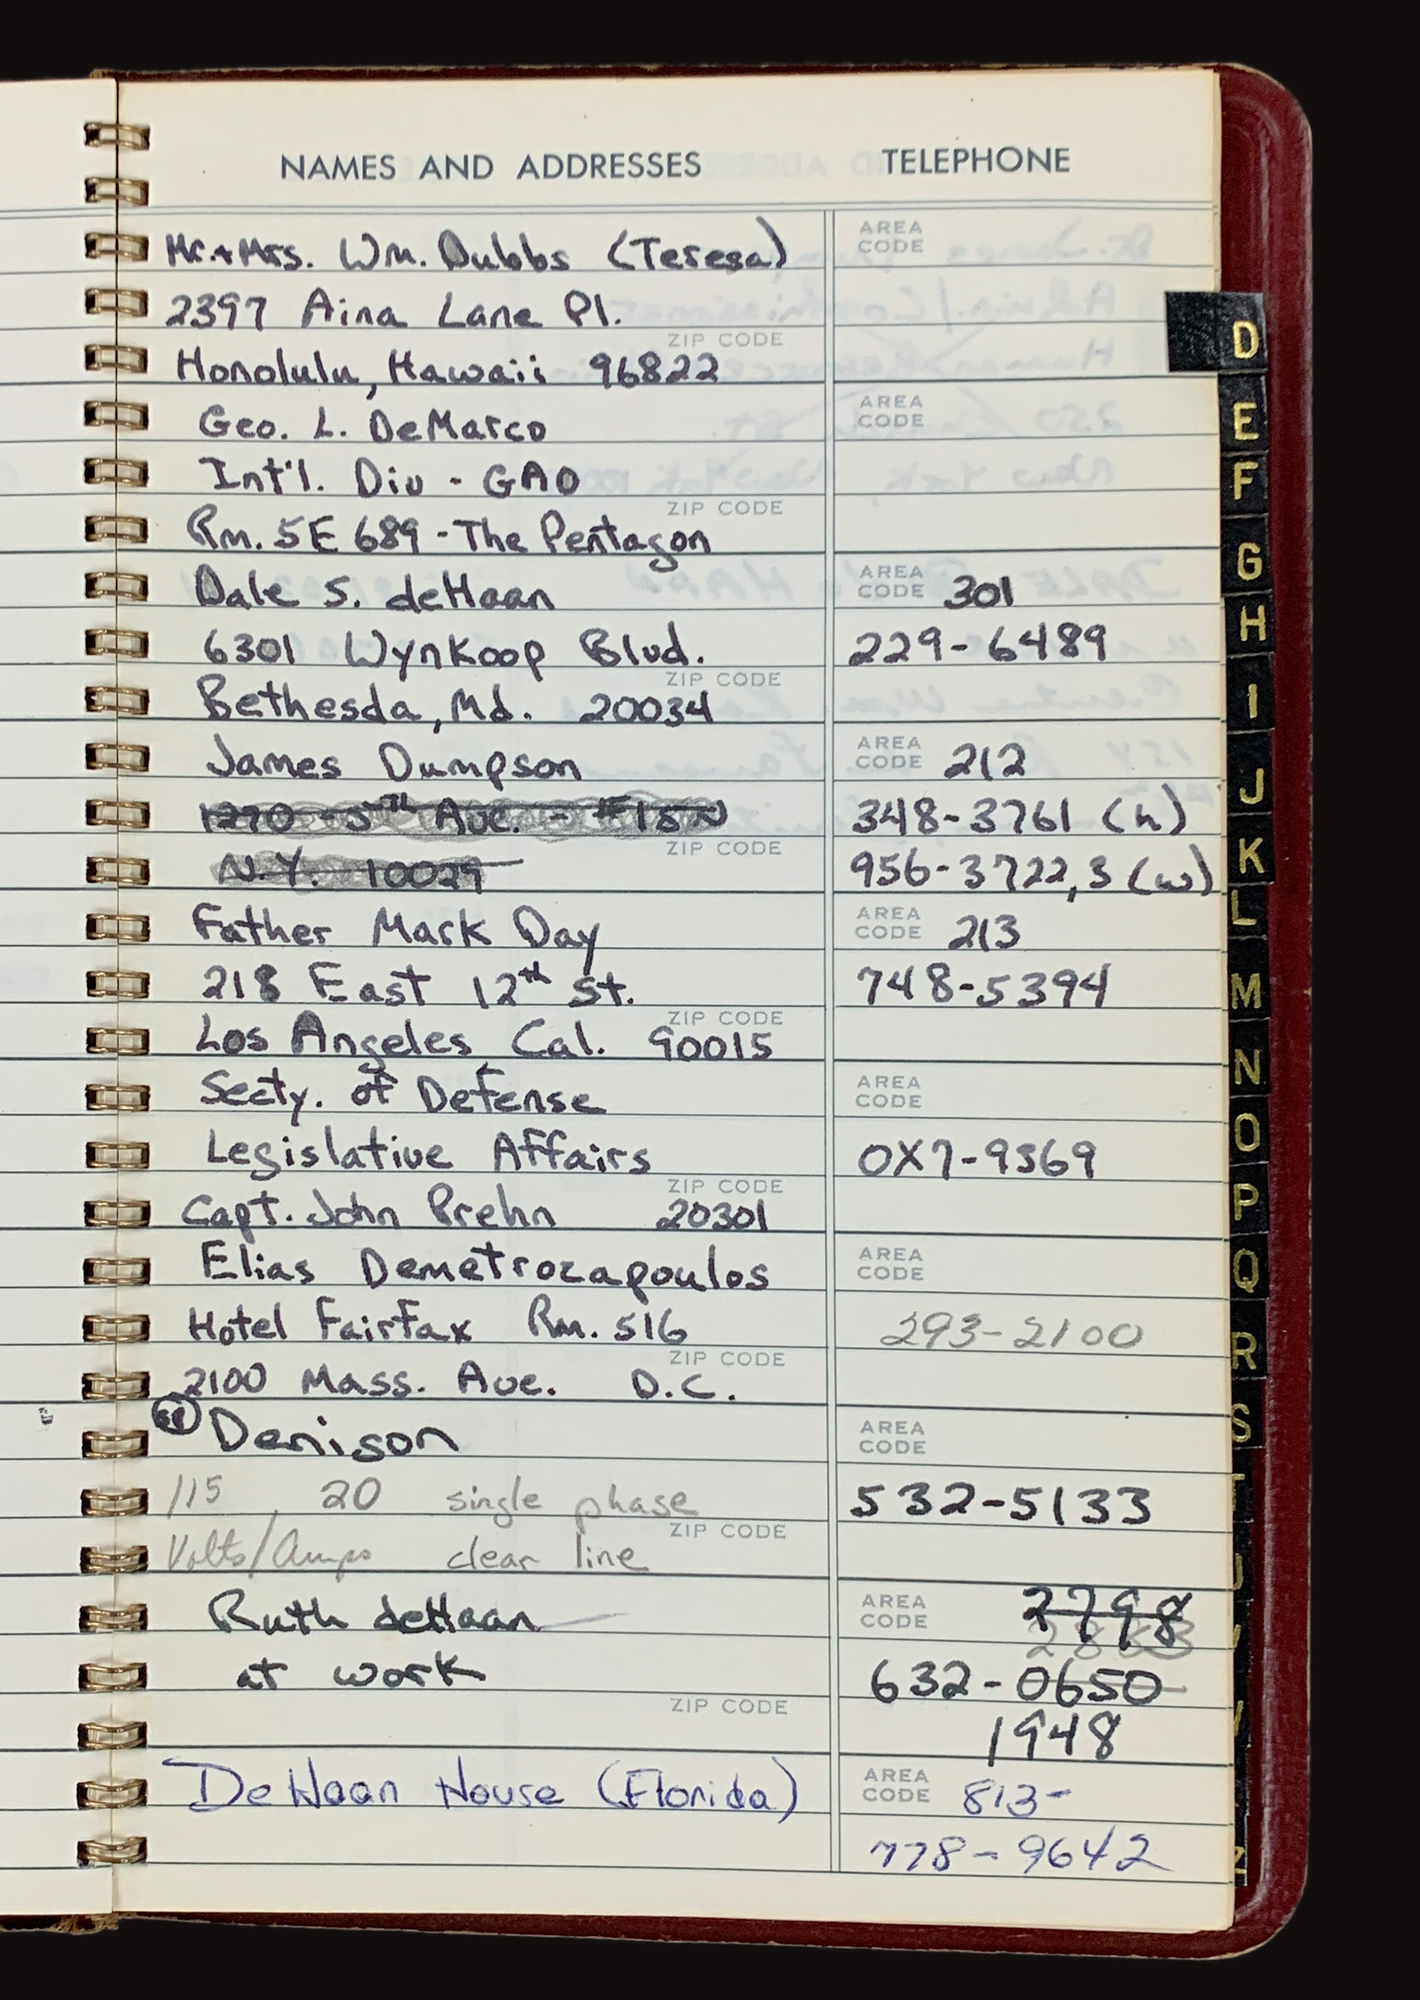 NAMES AND ADDRESSES TELEPHONE
Mr. + Mrs. Wm. Dubbs (Teresa) AREA CODE
2397 Aina Lane Pl.
ZIP CODE
Honolulu, Hawaii 96822
Geo. L. DeMarco AREA CODE
Int'l. Div - GAO
ZIP CODE
Rm. 5E 689 - The Pentagon
Dale S. deHaan AREA CODE 301
6301 Wynkoop Blvd. 229-6489
ZIP CODE
Bethesda, Md. 20034
James Dumpson AREA CODE 212
1270 - 5th Ave. - #15N 348-3761 (h)
ZIP CODE
N.Y. 10029 956-3722,3 (w)
Father Mark Day AREA CODE 213
218 East 12th St. 748-5394
ZIP CODE
Los Angeles, Cal. 90015
Secty. of Defense AREA CODE
Legislative Affairs OX7-9569
ZIP CODE
Capt. John Prehn 20301
Elias Demetrozapoulos AREA CODE
Hotel Fairfax Rm. 516 293-2100
ZIP CODE
2100 Mass. Ave. D.C.
Denison AREA CODE
115 20 single phase 532-5133
ZIP CODE
Volts/Amps clear line
Ruth deHaan AREA CODE 2798
at work 632-0650
ZIP CODE
1948
DeHaan House (Florida) AREA CODE 813-
778-9642
D
E
F
G
H
I
J
K
L
M
N
O
P
Q
R
S
T
U
V
Z